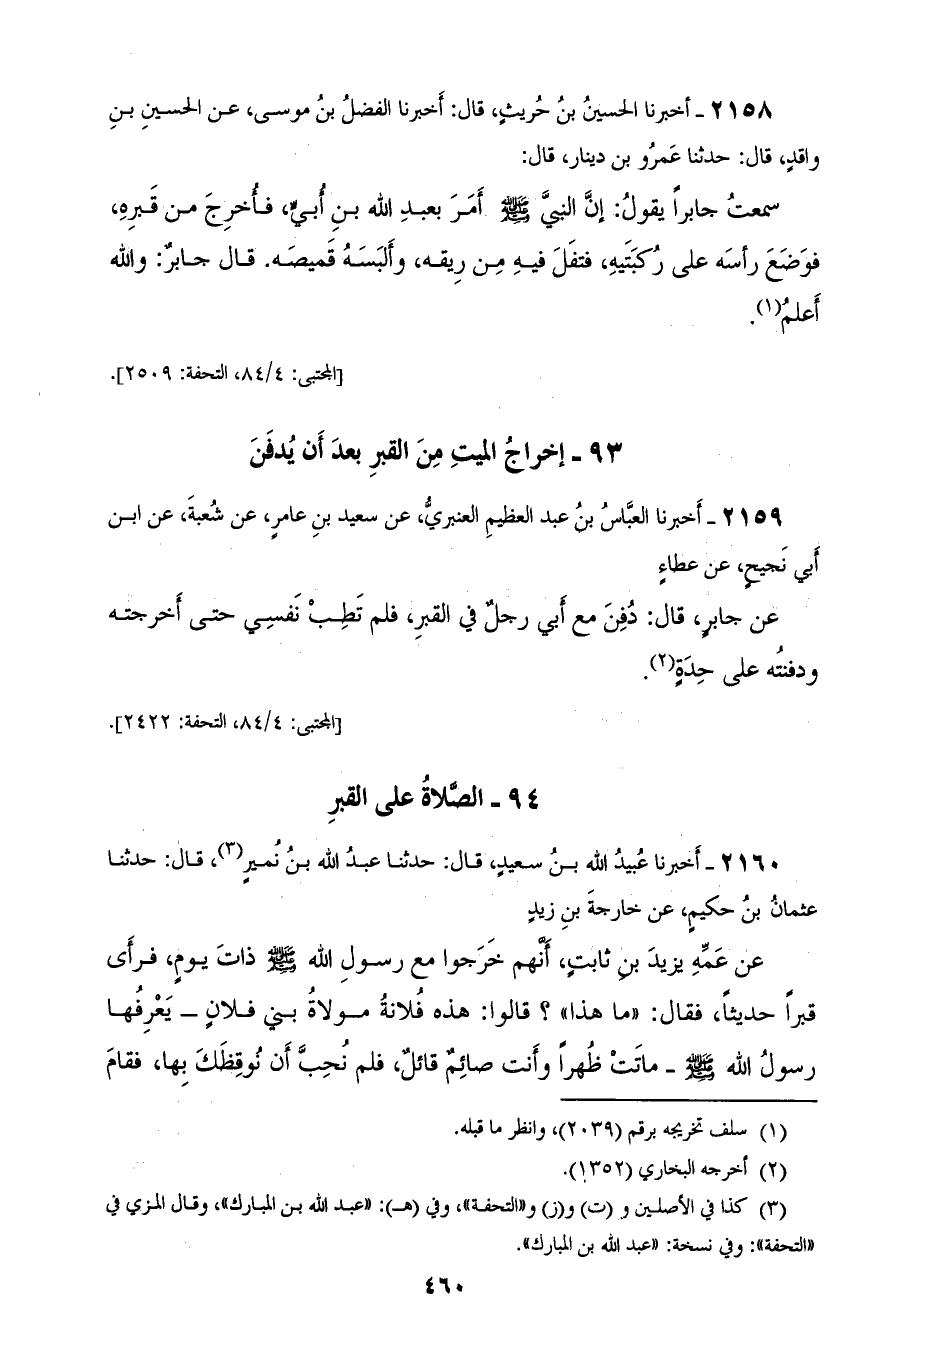 ٢١٥٨ ـ أخبرنا الحسينُ بنُ حُريثٍ، قال: أَخبرنا الفضلُ بنُ موسى، عن الحسينِ بنِ
واقدٍ، قال: حدثنا عَمرُو بن دينار، قال:
سمعتُ جابراً يقولُ: إنَّ النبيَّ ﷺ أَمَرَ بعبدِ الله بنِ أُبيٍّ، فأُخرِجَ من قَبرِه،
فوَضَعَ رأسَه على رُكبَتَيهِ، فتفَلَ فيهِ مِن رِيقه، وأَلبَسَهُ قَميصَه. قال جابرٌ: والله
أَعلمُ(١).
[المجتبى: ٨٤/٤، التحفة: ٢٥٠٩].
٩٣ ـ إخراجُ الميتِ مِنَ القبرِ بعدَ أَن يُدفَنَ
٢١٥٩ ـ أَخبرنا العبَّاسُ بنُ عبد العظيمِ العنبريُّ، عن سعيد بنِ عامرٍ، عن شُعبةَ، عن ابن
أبي نَجيحٍ، عن عطاءٍ
عن جابرٍ، قال: دُفِنَ مع أَبي رجلٌ في القبرِ، فلم تَطِبْ نَفسِي حتى أَخرجته
ودفنتُه على حِدَةٍ(٢).
[المجتبى: ٨٤/٤، التحفة: ٢٤٢٢].
٩٤ ـ الصَّلاةُ على القبرِ
٢١٦٠ ـ أَخبرنا عُبيدُ الله بنُ سعيدٍ، قال: حدثنا عبدُ الله بنُ نُميرٍ(٣)، قال: حدثنا
عثمانُ بنُ حكيمٍ، عن خارجةَ بنِ زيدٍ
عن عَمِّه يزيدَ بنِ ثابتٍ، أَنَّهم خَرَجوا مع رسولِ الله ﷺ ذاتَ يومٍ، فرأَى
قبراً حديثاً، فقال: «ما هذا» ؟ قالوا: هذه فُلانةُ مولاةُ بني فلانٍ ـ يَعْرِفُها
رسولُ الله ﷺ ـ ماتَتْ ظُهراً وأَنت صائِمٌ قائلٌ، فلم نُحِبَّ أَن نُوقِظَكَ بِها، فقامَ
(١) سلف تخريجه برقم (٢٠٣٩)، وانظر ما قبله.
(٢) أخرجه البخاري (١٣٥٢).
(٣) كذا في الأصلين و (ت) و(ز) و«التحفة»، وفي (هـ): «عبد الله بن المبارك»، وقال المزي في
«التحفة»: وفي نسخة: «عبد الله بن المبارك».
٤٦٠